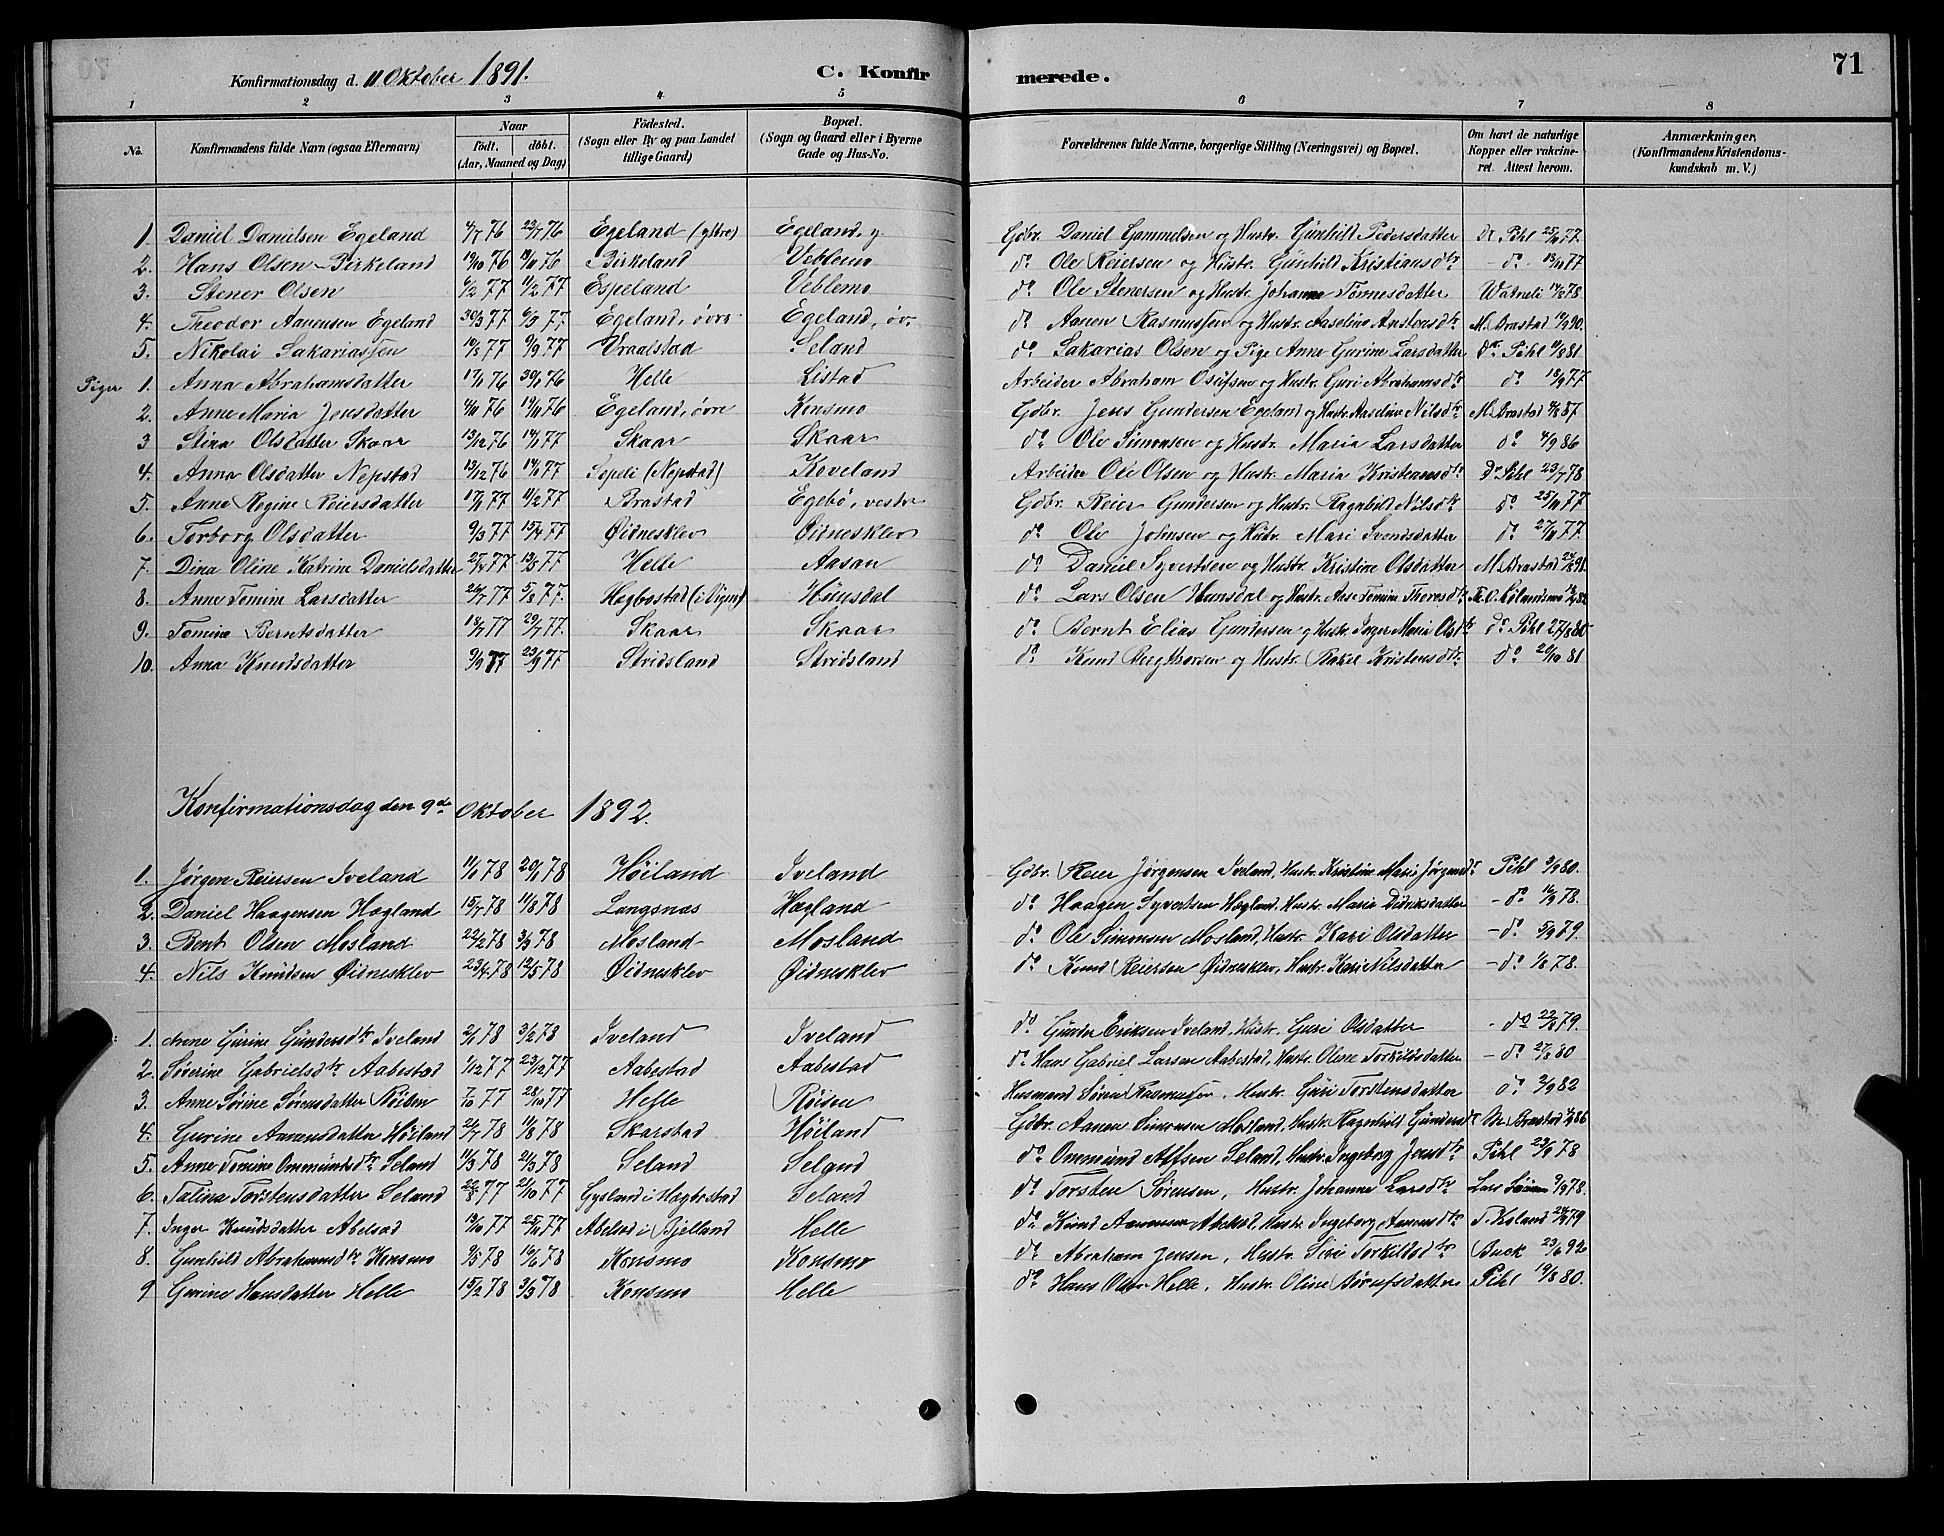 71
Konfirmationsdag d. 11 Oktober 1891.
C. Konfirmerede.
1 2 3 4 5 6 7 8
No.
Konfirmandens fulde Navn (ogsaa Efternavn)
Naar
født. døbt.
(Aar, Maaned og Dag)
Födested.
(Sogn eller By og paa Landet
tillige Gaard)
Bopæl.
(Sogn og Gaard eller i Byerne
Gade og Hus-No.
Forældrenes fulde Navne, borgerlige Stilling (Næringsvei) og Bopæl.
Om havt de naturlige
Kopper eller vakcine-
ret. Attest herom.
Anmærkninger,
(Konfirmandens Kristendoms-
kundskab m. V.)
1 Daniel Danielsen Egeland 4/7 76 23/7 76 Egeland (ytre) Egeland, y. Gdbr. Daniel Gammelsen og Hustr. Gunhild Pedersdatter Dr. Pihl 77
2. Hans Olsen Birkeland 76 76 Birkeland Veblemo do Ole Reiersen og Hustr. Gunhild Kristiansdtr - do - 77
3. Stener Olsen 6/2 77 11/2 77 Espeland Veblemo do Ole Stenersen og Hustr. Johanne Tønnesdatter 78
4. Theodor Aanensen Egeland 77 77 Egeland, övre Egeland, öv. do Aanen Rasmussen og Hustr. Aaseline M. Brastad 90.
5. Nikolai Sakariassen 77 9/9 77 Vraalstad Seland do Sakarias Olsen og Pige Anne Gurine Larsdatter Dr. Pihl 81
Piger 1. Anna Abrahamsdatter 76 76 Helle Listad Arbeider Abraham Osufsen og Hustr. Guri Abrahamsdtr do 77
2. Anne Maria Jensdatter 76 76 Egeland, övre Konsmo Gdbr. Jens Gundersen Egeland og Hustr. Aaseline Nilsdtr M. Brastad 87
3 Stina Olsdatter Skaar 13/12 76 77 Skaar Skaar do Ole Simonsen og Hustr. Maria Larsdatter do 4/9 86
4. Anna Olsdatter Nepstad 13/12 76 77 (Nepstad) Koveland Arbeider Ole Olsen og Hustr. Maria Kristensdtr Dr Pihl 23/7 78
5. Anne Regine Reiersdatter 77 11/2 77 Brastad Egebö, vestr Gdbr. Reier Gundersen og Hustr. Ragnhild Nilsdtr do 77
6. Torborg Olsdatter 9/3 77 15/4 77 Øidnesklev Øidnesklev do Ole Johnsen og Hustr. Mari Svendsdatter do 77
7. Dina Oline Katrine Danielsdatter 77 13/5 77 Helle Aasan do Daniel Syvertsen og Hustr. Kristine Olsdatter M. Brastad 91
8. Anne Tomine Larsdatter 77 77. Hegbostad Hunsdal do Lars Olsen Hunsdal og Hustr. Aase Tomine 82
9. Tomine Berntsdatter 18/7 77 29/7 77. Skaar Skaar do Bernt Elias Gundersen og Hustr. Inger Maria Olsdtr Dr. Pihl 27/8 80
10. Anna Knudsdatter 77 23/9 77 Stridsland Stridsland do Knud Bergthorsen og Hustr. Rakel Kristensdtr do 20/10 81
Konfirmationsdag den 9de Oktober 1892.
1. Jørgen Reiersen Iveland 78 78 Höiland Iveland Gdbr. Reier Jørgensen Iveland, Hustr. Kristine Marie Pihl 80.
2. Daniel Haagensen Hægland 15/7 78 11/8 78 Langenæs Hægland do Haagen Syvertsen Hægland, Hustr. Maria Didriksdatter - do 78.
3. Bent Olsen Mosland 22/2 78 3/3 78 Mosland Mosland do Ole Simonsen Mosland, Hustr. Kari Olsdatter - do 79.
4. Nils Knudsen Øidnesklev 23/4 78 12/5 78 Øidnesklev Øidnesklev do Knud Reiersen Øidnesklev, Hustr. Kari Nilsdatter - do 1/8 78.
1. Anne Gurine Gundersdtr Iveland 78 3/2 78 Iveland Iveland do Gunder Eriksen Iveland, Hustr. Guri Olsdatter - do 79.
2. Severine Gabrielsdtr Aabestad 1/12 77 23/12 77 Aabestad Aabestad do Hans Gabriel Larsen Aabestad, Hustr. Olene Torkildsdatter - do 27/8 80
3. Anne Sörine Sörensdatter Röisen 7/10 77 28/10 77 Helle Röisen Husmand Sören Rasmussen, Hustr. Guri Torstensdatter do 82
4. Gurine Aanensdatter Höiland 78 11/8 78 Skarstad Höiland Gdbr. Aanen Simonsen Mosland, Hustr. Ragnhild Gundersdtr M. Brastad 86
5. Anne Tomine Ommundsdtr Seland 11/3 78 21/3 78 Seland Seland do Ommund Alfsen Seland, Hustr. Ingeborg Jensdtr Pihl 78
6. Talina Torstensdatter Seland 77 21/10 77 Gysland i Hægbostad Seland do Torsten Sörensen, Hustr. Johanne Larsdtr 78.
7. Inger Knudsdatter Abelsæd 77 77 Abelsæd i Bjelland Helle do Knud Aanensen Hustr. Ingeborg Aanensdtr 79
8. Gunhild Abrahamsdtr Konsmo 9/5 78 16/6 78 Konsmo Konsmo do Abraham Jensen, Hustr. Siri Torkildsdtr Buck 23/6 92
9 Gurine Hansdatter Helle 15/2 78 3/3 78 Konsmo Helle do Hans Olsen Helle, Hustr. Oline Pihl 19/8 80.